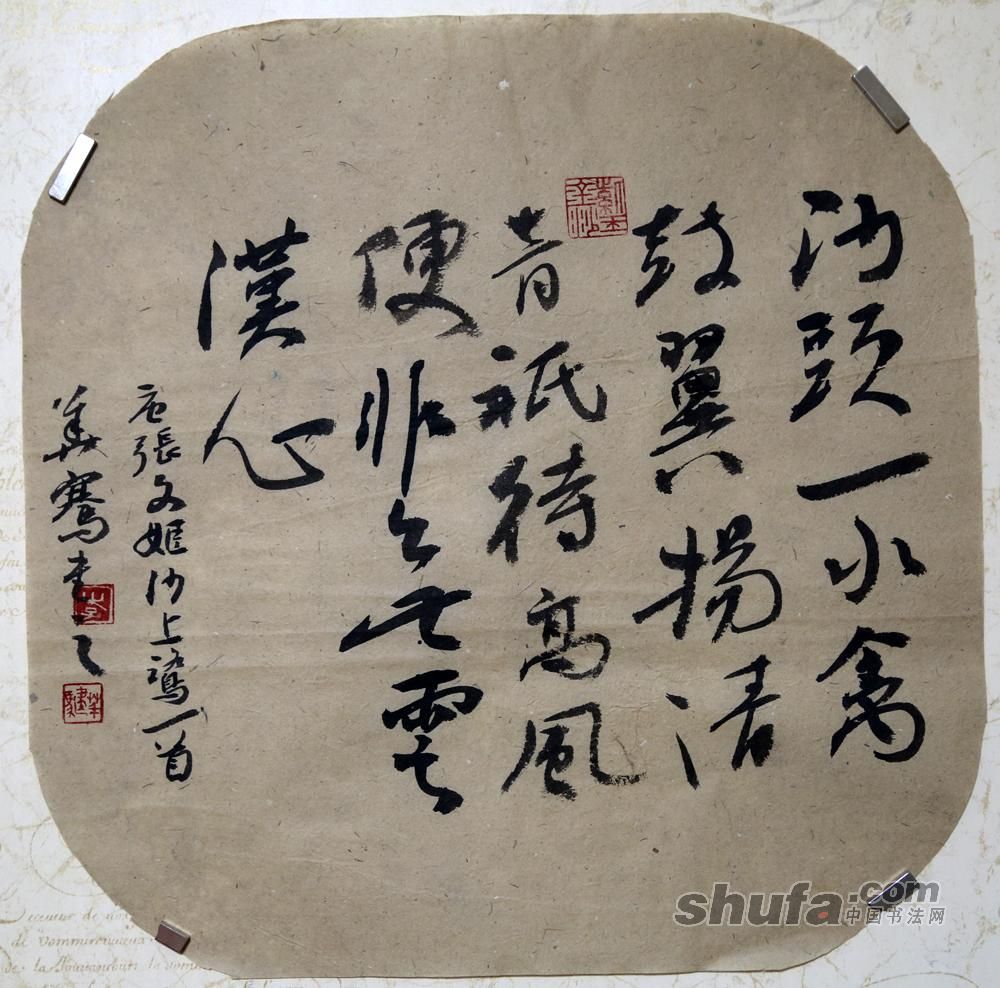 沙頭一水禽
鼓翼揚清
音祇待高風
便非無雲
漢心
唐張文姬沙上鷺一首
華騫書之
shufa.com
中国书法网